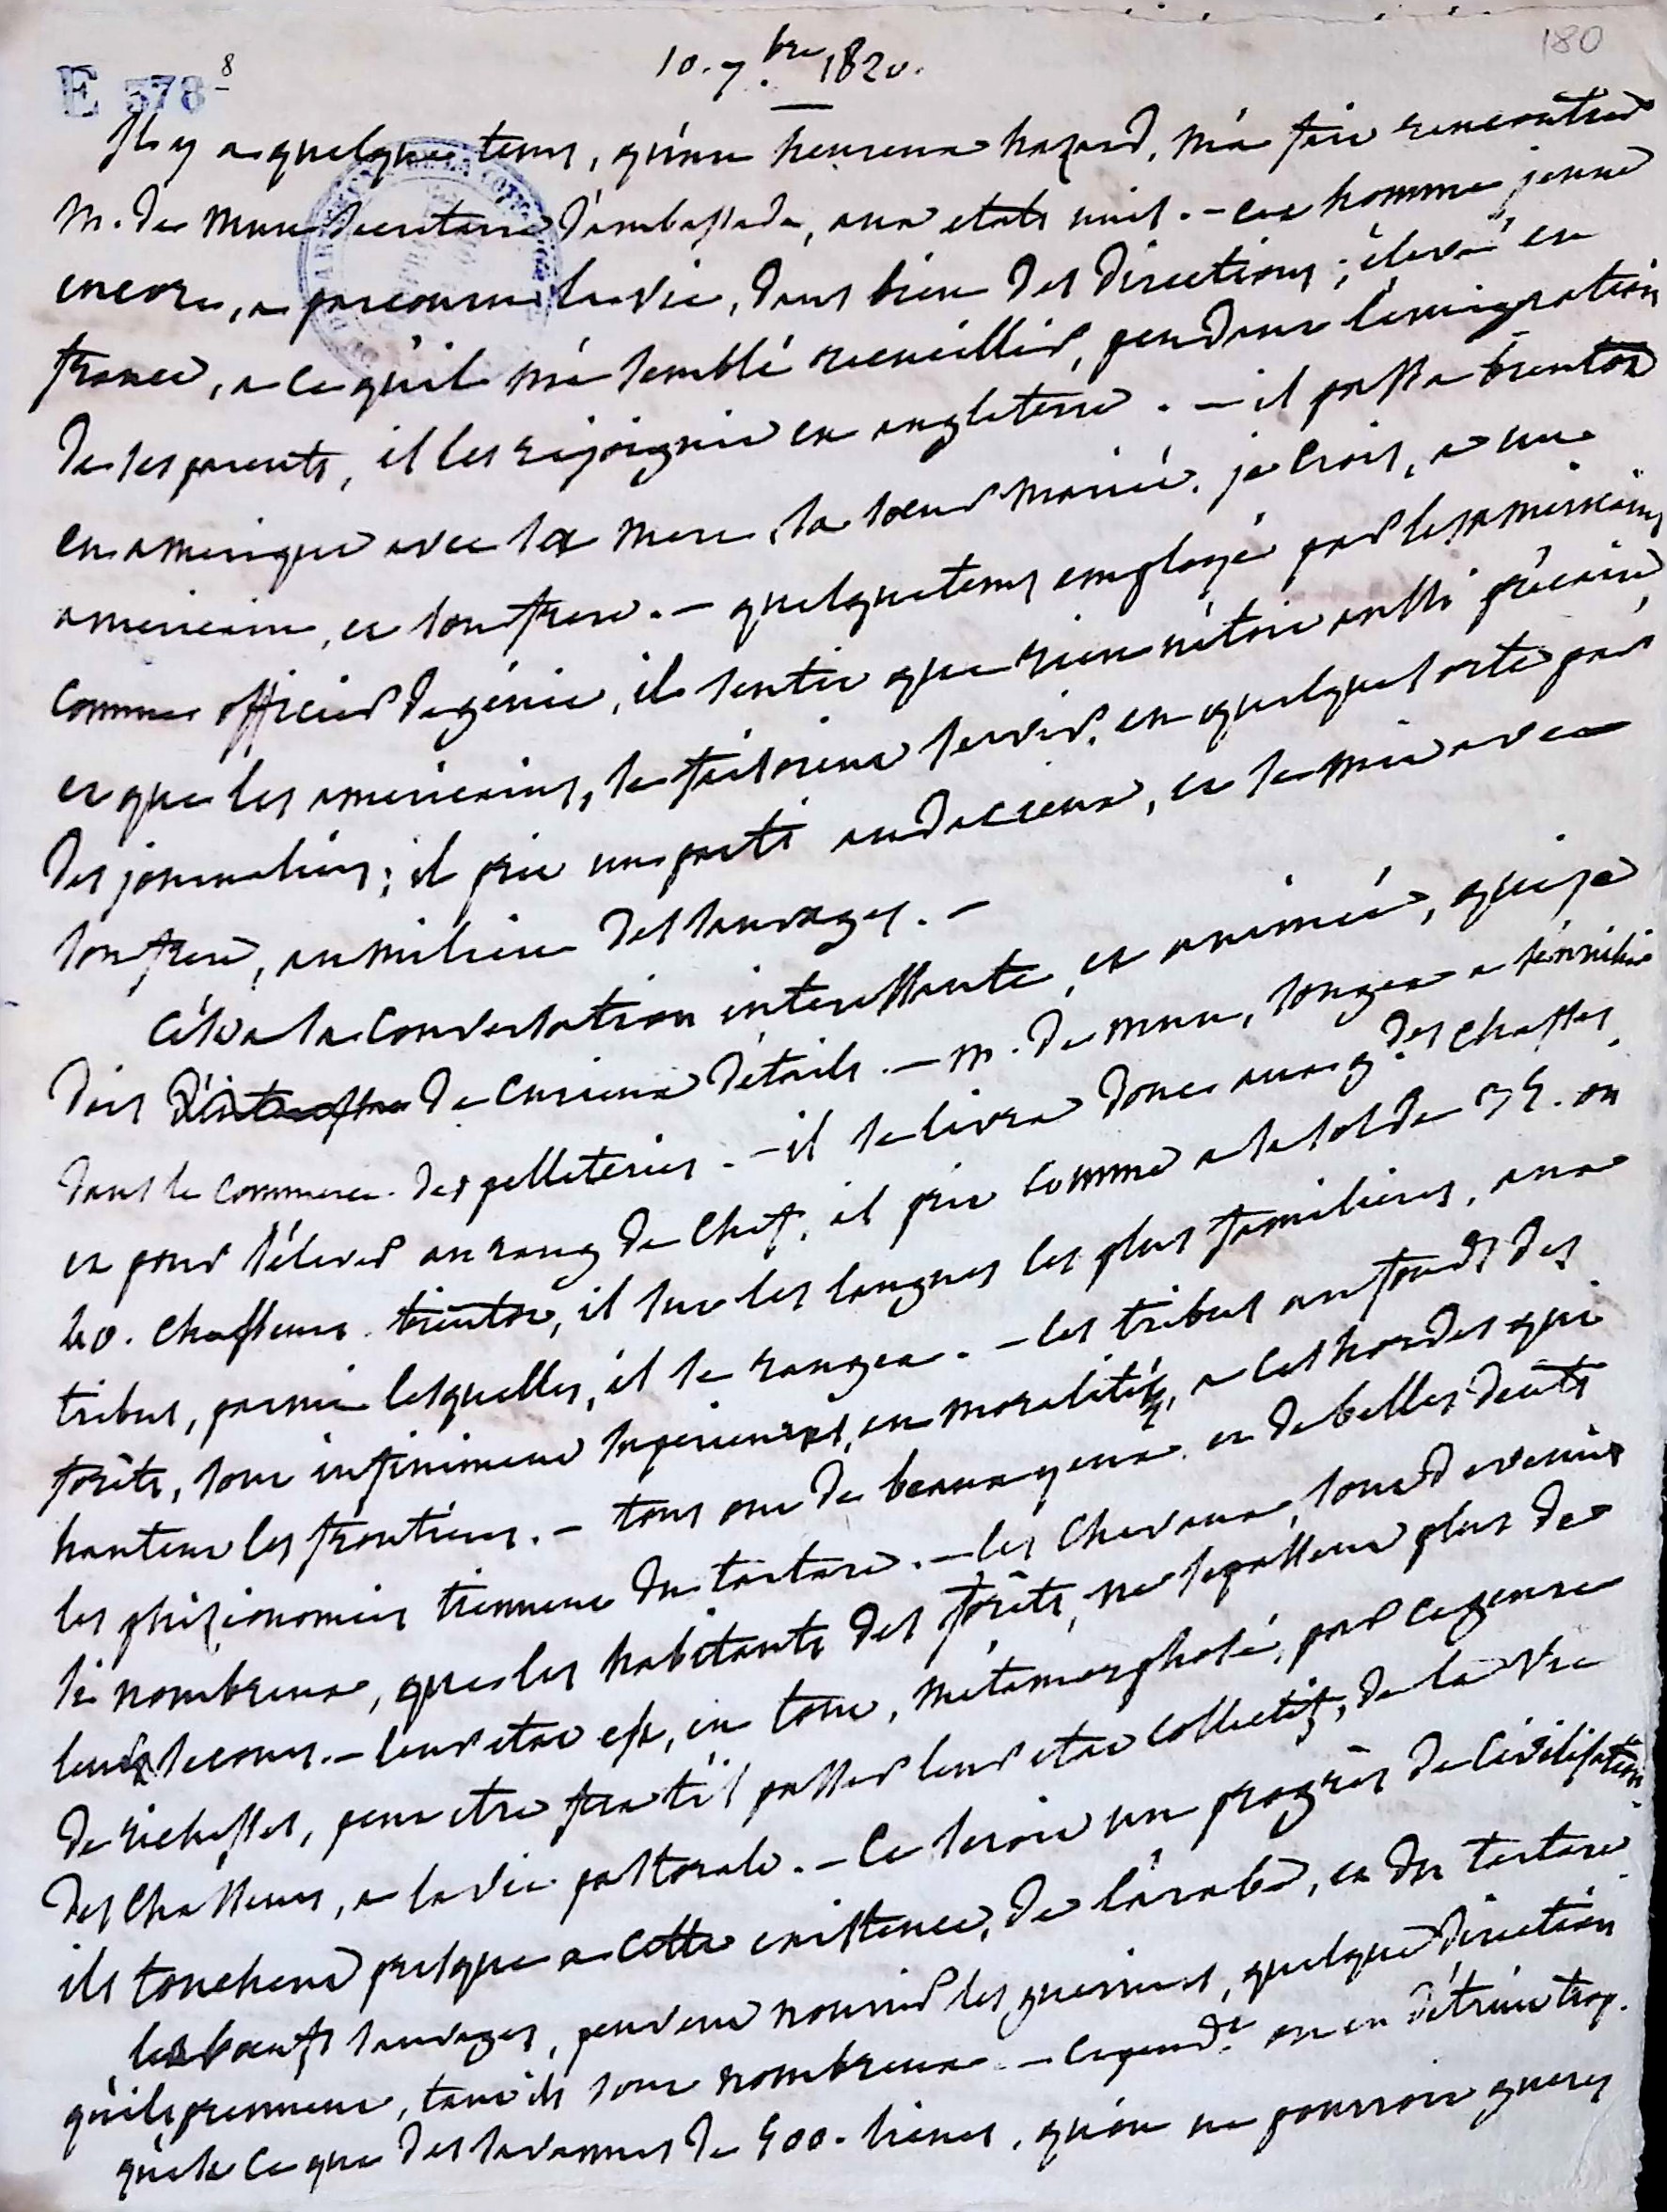 180
E 378 8
10. 7.bre 1820.
Il y a quelques tems, qu'un heureux hazard, m'a fait rencontrer
M. de Mun secretaire d'ambassade, aux etats unis. - cet homme jeune
encore, a parcouru la vie, dans bien des directions ; élevé en
france, a ce qu'il m'a semblé recueillir, pendant l'emigration
de ses parents, il les rejoignit en angleterre. - il passa bientot
en amerique avec sa mere, sa soeur mariée, je crois, a un
americain, et son frere. - quelque tems employé par les americains
comme officier de génie, il sentit que rien n'étoit aussi précaire,
et que les americains, se faisoient servir, en quelque sorte par
des journaliers ; il prit un parti audacieux, et se mit avec
son frere, au milieu des sauvages. -
C'est a sa conversation interessante, et animée, que je
dois de curieux détails. - M. de Mun, songea a s'enrichir
dans le commerce des pelleteries. - il se livra donc aux g.des chasses,
et pour s'élever au rang de chef, il prit comme a sa solde 35. ou
40. chasseurs. bientot, il sut les langues les plus familieres, aux
tribus, parmi lesquelles, il se rangea. - les tribus au fonds des
forêts, sont infiniment superieures, en moralité, a ces hordes qui
hantent les frontieres. - tous ont de beaux yeux et de belles dents
les phisionomies tiennent du tartare. - les chevaux, sont devenus
si nombreux, que les habitants des forêts, ne se passent plus de
leur secours. - leur etat est, en tout, métamorphosé, par ce genre
de richesses, peut etre fera t'il passer leur etat collectif, de la vie
des chasseurs, a la vie pastorale. - Ce seroit un progrès de civilisation.
ils touchent presque a cette existence, de l'arabe, et du tartare
les boeufs sauvages, peuvent nourrir les guerriers, quelque direction
qu'ils prennent, tant ils sont nombreux. - cepend.t on en détruit trop.
qu'est ce que des savannes de 500. lieues, qu'on ne pourroit gueres